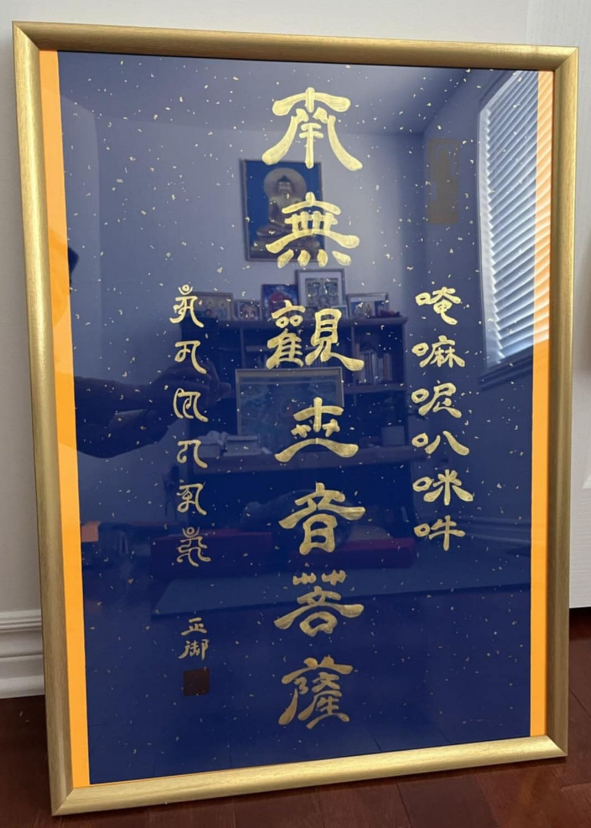 唵嘛呢叭咪吽
南無觀世音菩薩
正御